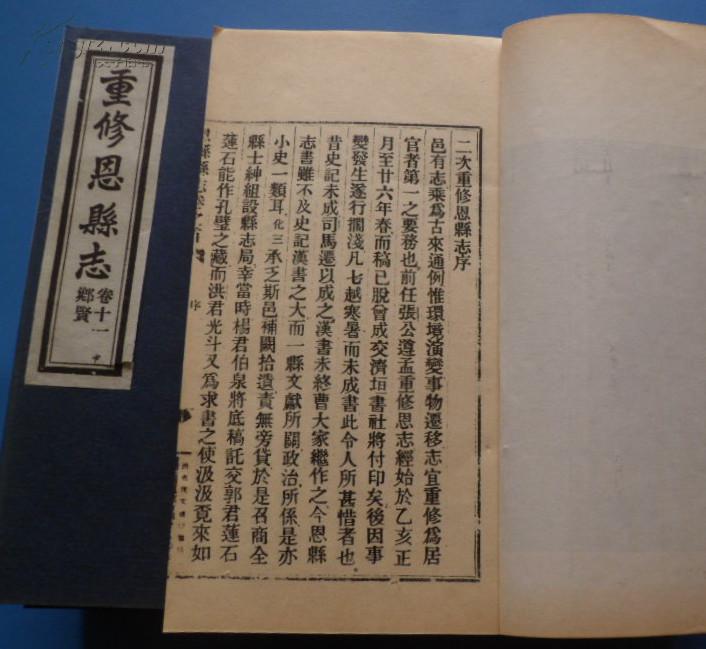 重修恩縣志
卷十一
鄉賢
二次重修恩縣志序
邑有志乘為古來通例惟環境演變事物遷移志宜重修為居
官者第一之要務也前任張公遵孟重修恩志經始於乙亥正
月至廿六年春而稿已脫曾成交濟垣書社將付印矣後因事
變發生遂行擱淺凡七越寒暑而未成書此令人所甚惜者也
昔史記未成司馬遷以成之漢書未終曹大家繼作之今恩縣
志書雖不及史記漢書之大而一縣文獻所關政治所係是亦
小史一類耳化三承乏斯邑補闕拾遺責無旁貸於是召商全
縣士紳組設縣志局幸當時楊君伯泉將底稿託交郭君蓮石
蓮石能作孔壁之藏而洪君光斗又為求書之使汲汲竟來如
序